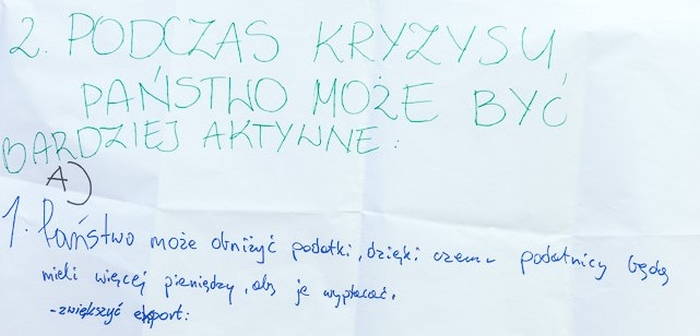 2. PODCZAS KRYZYSU,
PAŃSTWO MOŻE BYĆ
BARDZIEJ AKTYWNE:
A)
1. Państwo może obniżyć podatki, dzięki czemu podatnicy będą
mieli więcej pieniędzy, aby je wypłacać.
- zwiększyć export: